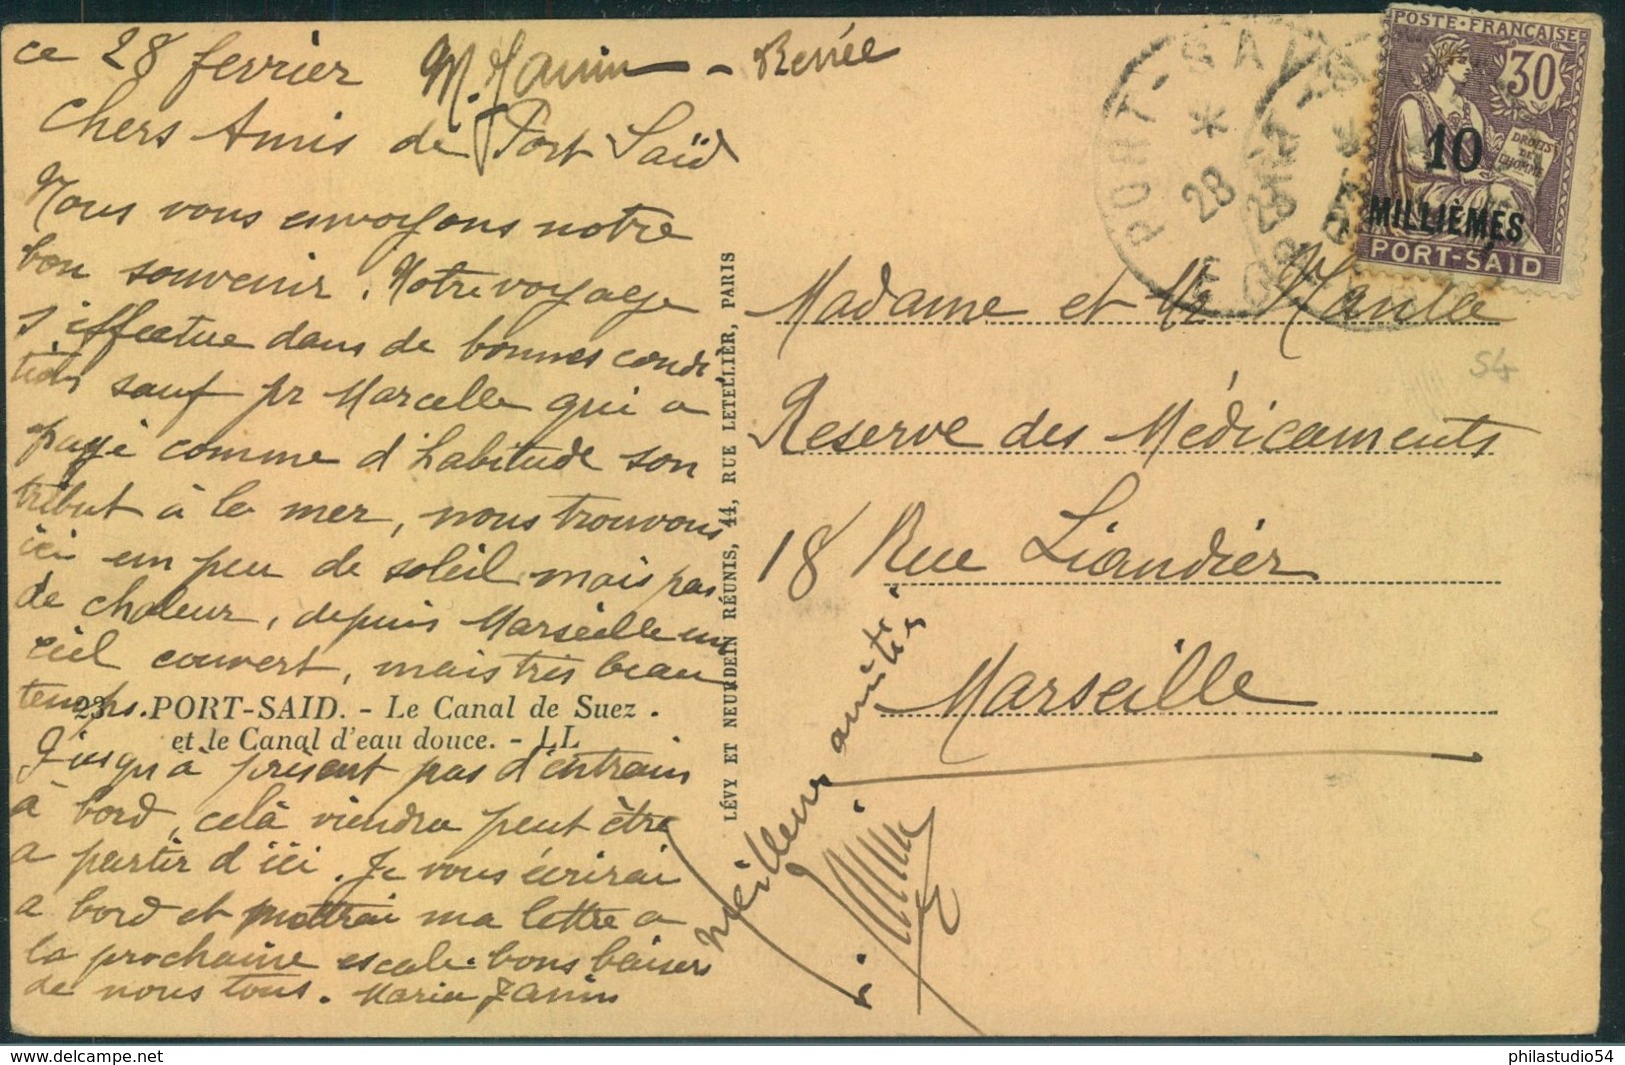 ce 28 fevrier M. Janin - Renée
Chers Amis de Port Saïd
Nous vous envoyons notre
bon souvenir. Notre voyage
s'effectue dans de bonnes condi-
tions sauf pr Marcelle qui a
payé comme d'habitude son
tribut à la mer, nous trouvons
ici un peu de soleil mais pas
de chaleur, depuis Marseille un
ciel couvert, mais très beau
temps.
23. PORT-SAID. - Le Canal de Suez.
et le Canal d'eau douce. - LL
Jusqu'à présent pas d'entrain
à bord, celà viendra peut être
a partir d'ici. Je vous écrirai
a bord et mettrai ma lettre a
la prochaine escale. bons baisers
de nous tous. Maria Janin
Meilleures amitiés
LÉVY ET NEURDEIN RÉUNIS, 44, RUE LETELLIER, PARIS
PORT-SAÏD
28
POSTE FRANÇAISE
30
DROITS DE L'HOMME
10
MILLIÈMES
PORT-SAÏD
Madame et Mr
Reserve des Médicaments
18 Rue Liandier
Marseille
54
delcampe.net
philastudio54